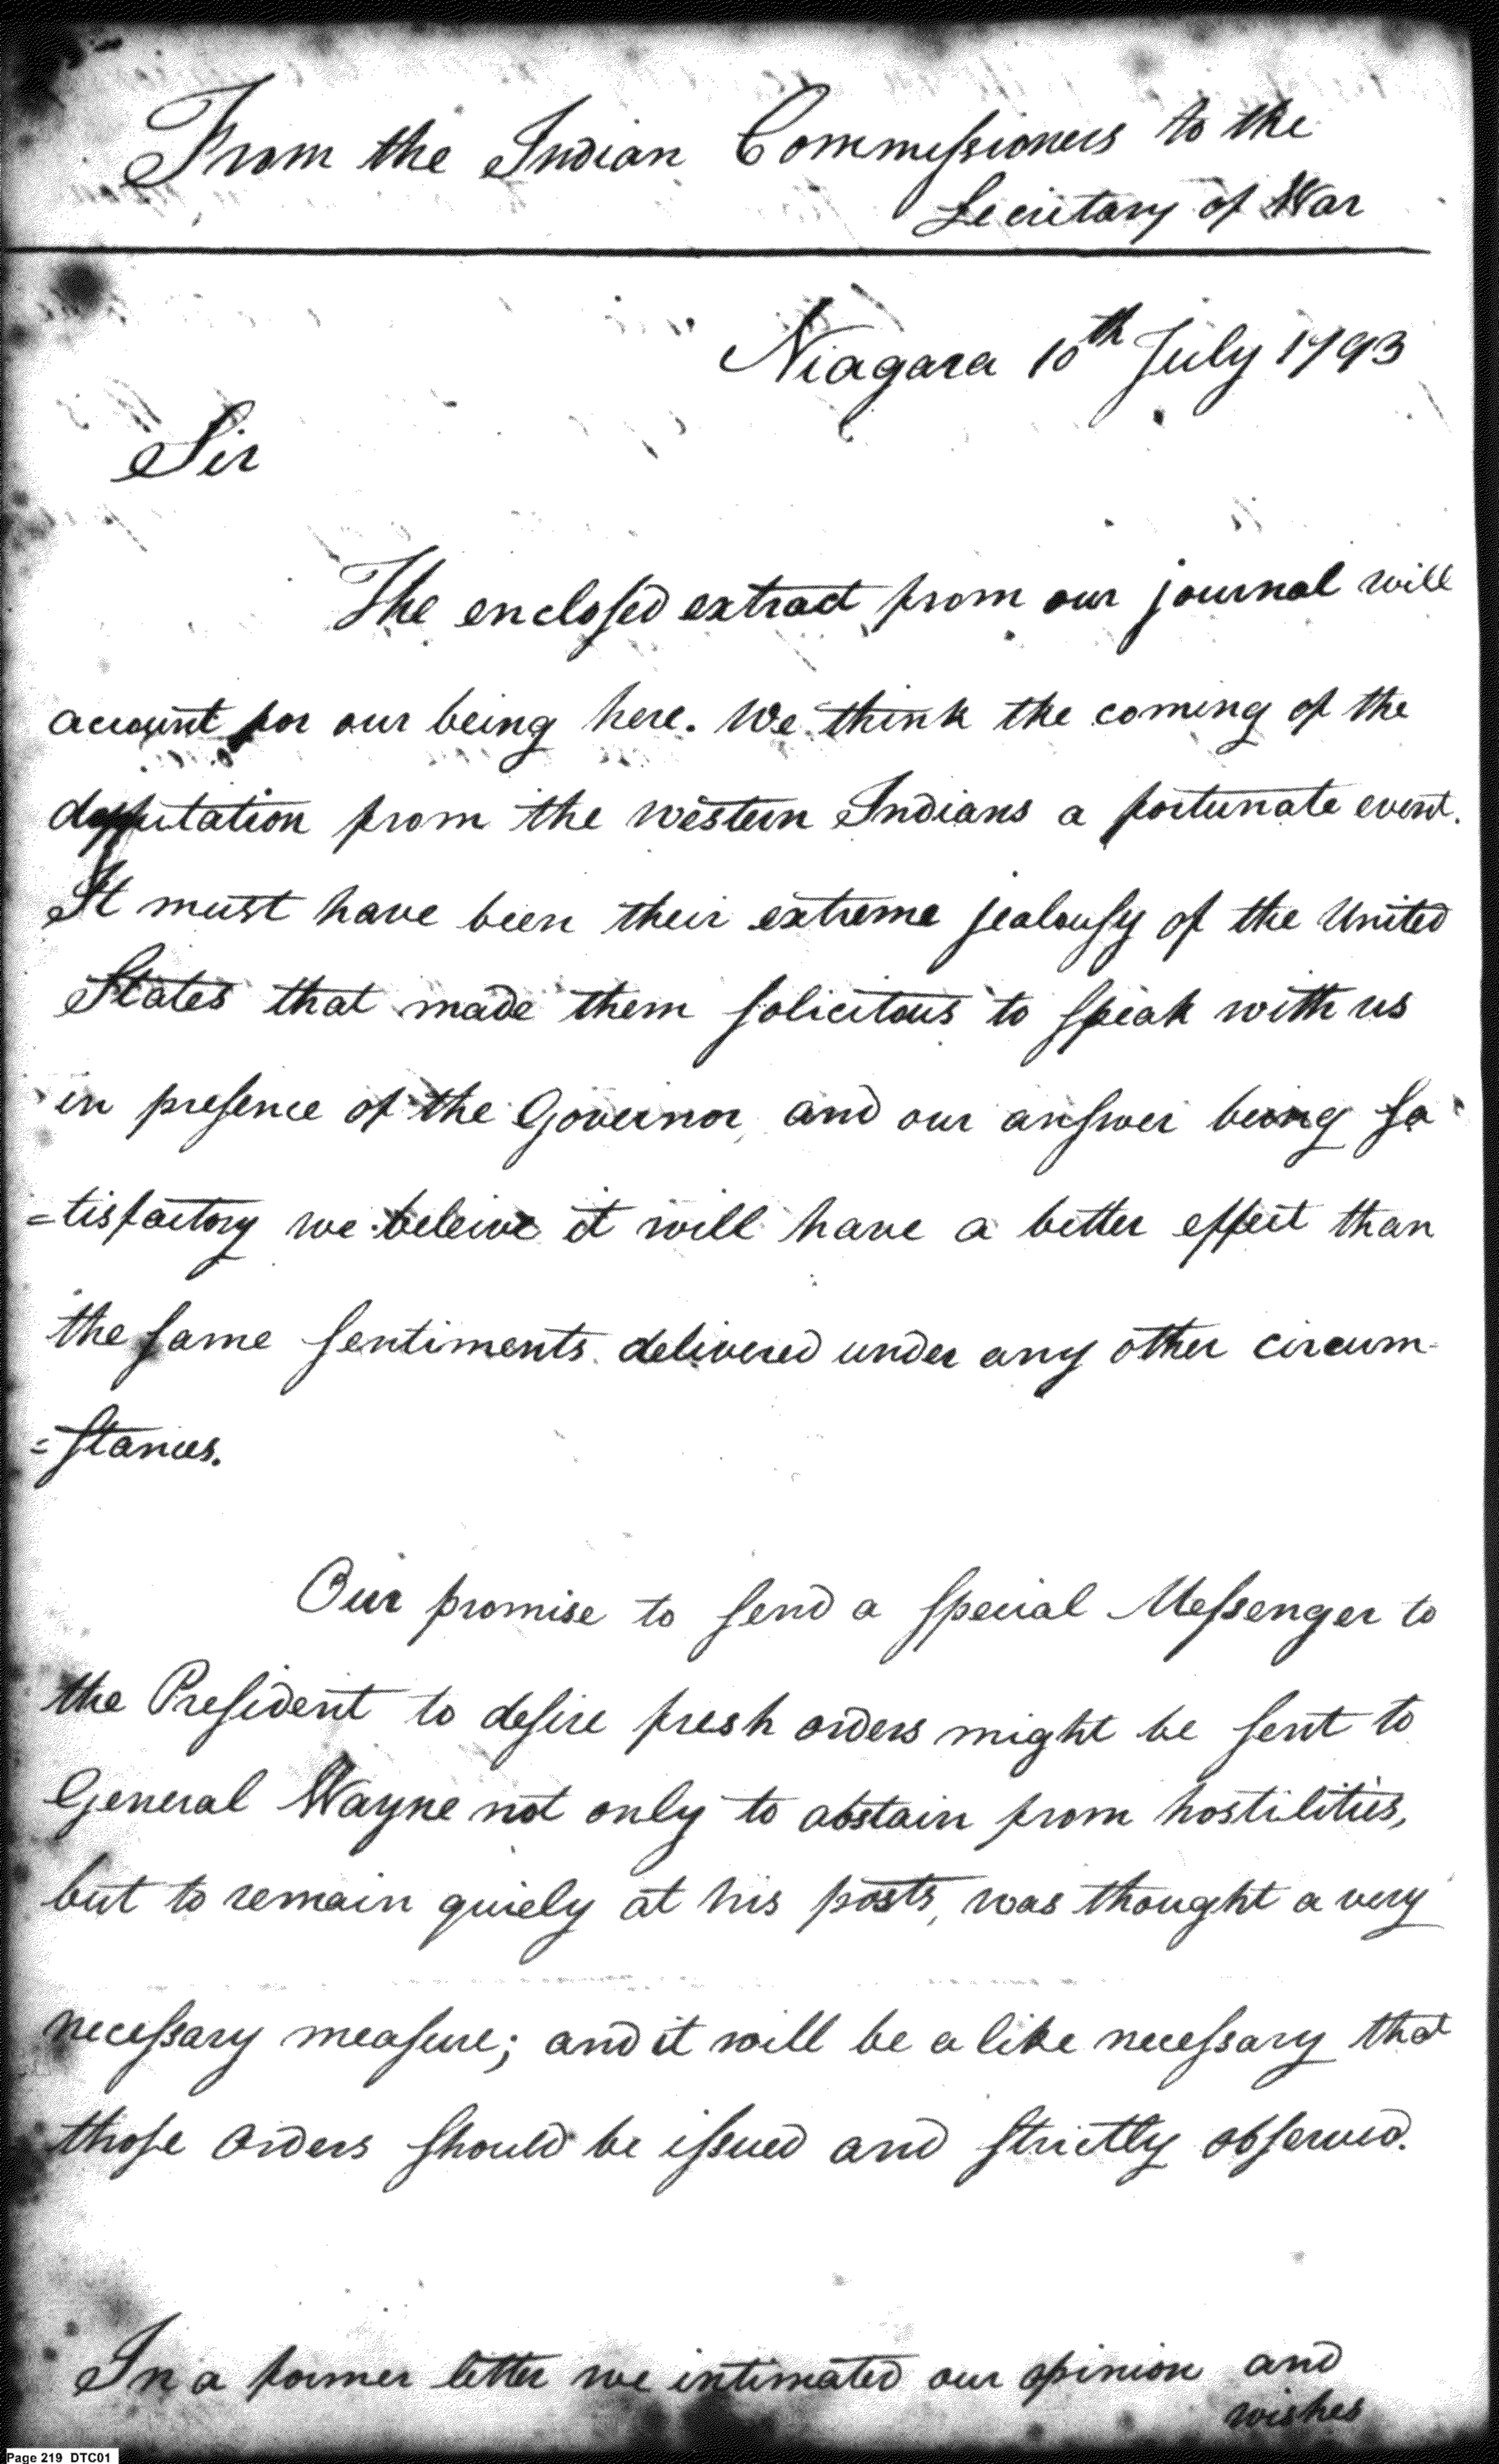 From the Indian Commissioners to the
Secretary of War
Niagara 10th July 1793
Sir
The enclosed extract from our journal will
account for our being here. We think the coming of the
deputation from the western Indians a fortunate event.
It must have been their extreme jealousy of the United
States that made them solicitous to speak with us
in presence of the Governor, and our answer being sa
=tisfactory we beleive it will have a better effect than
the same sentiments delivered under any other circum-
=stances.
Our promise to send a special Messenger to
the President to desire fresh orders might be sent to
General Wayne not only to abstain from hostilities,
but to remain quiely at his posts, was thought a very
necessary measure; and it will be alike necessary that
those orders should be issued and strictly observed.
In a former letter we intimated our opinion and
wishes
Page 219 DTC01